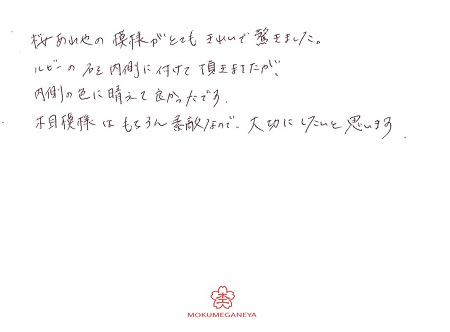 桜あわせの模様がとてもきれいで驚きました。
ルビーの石を内側に付けて頂きましたが、
内側の色に晴えて良かったです。
木目模様はもちろん素敵なので、大切にしたいと思います
MOKUMEGANEYA